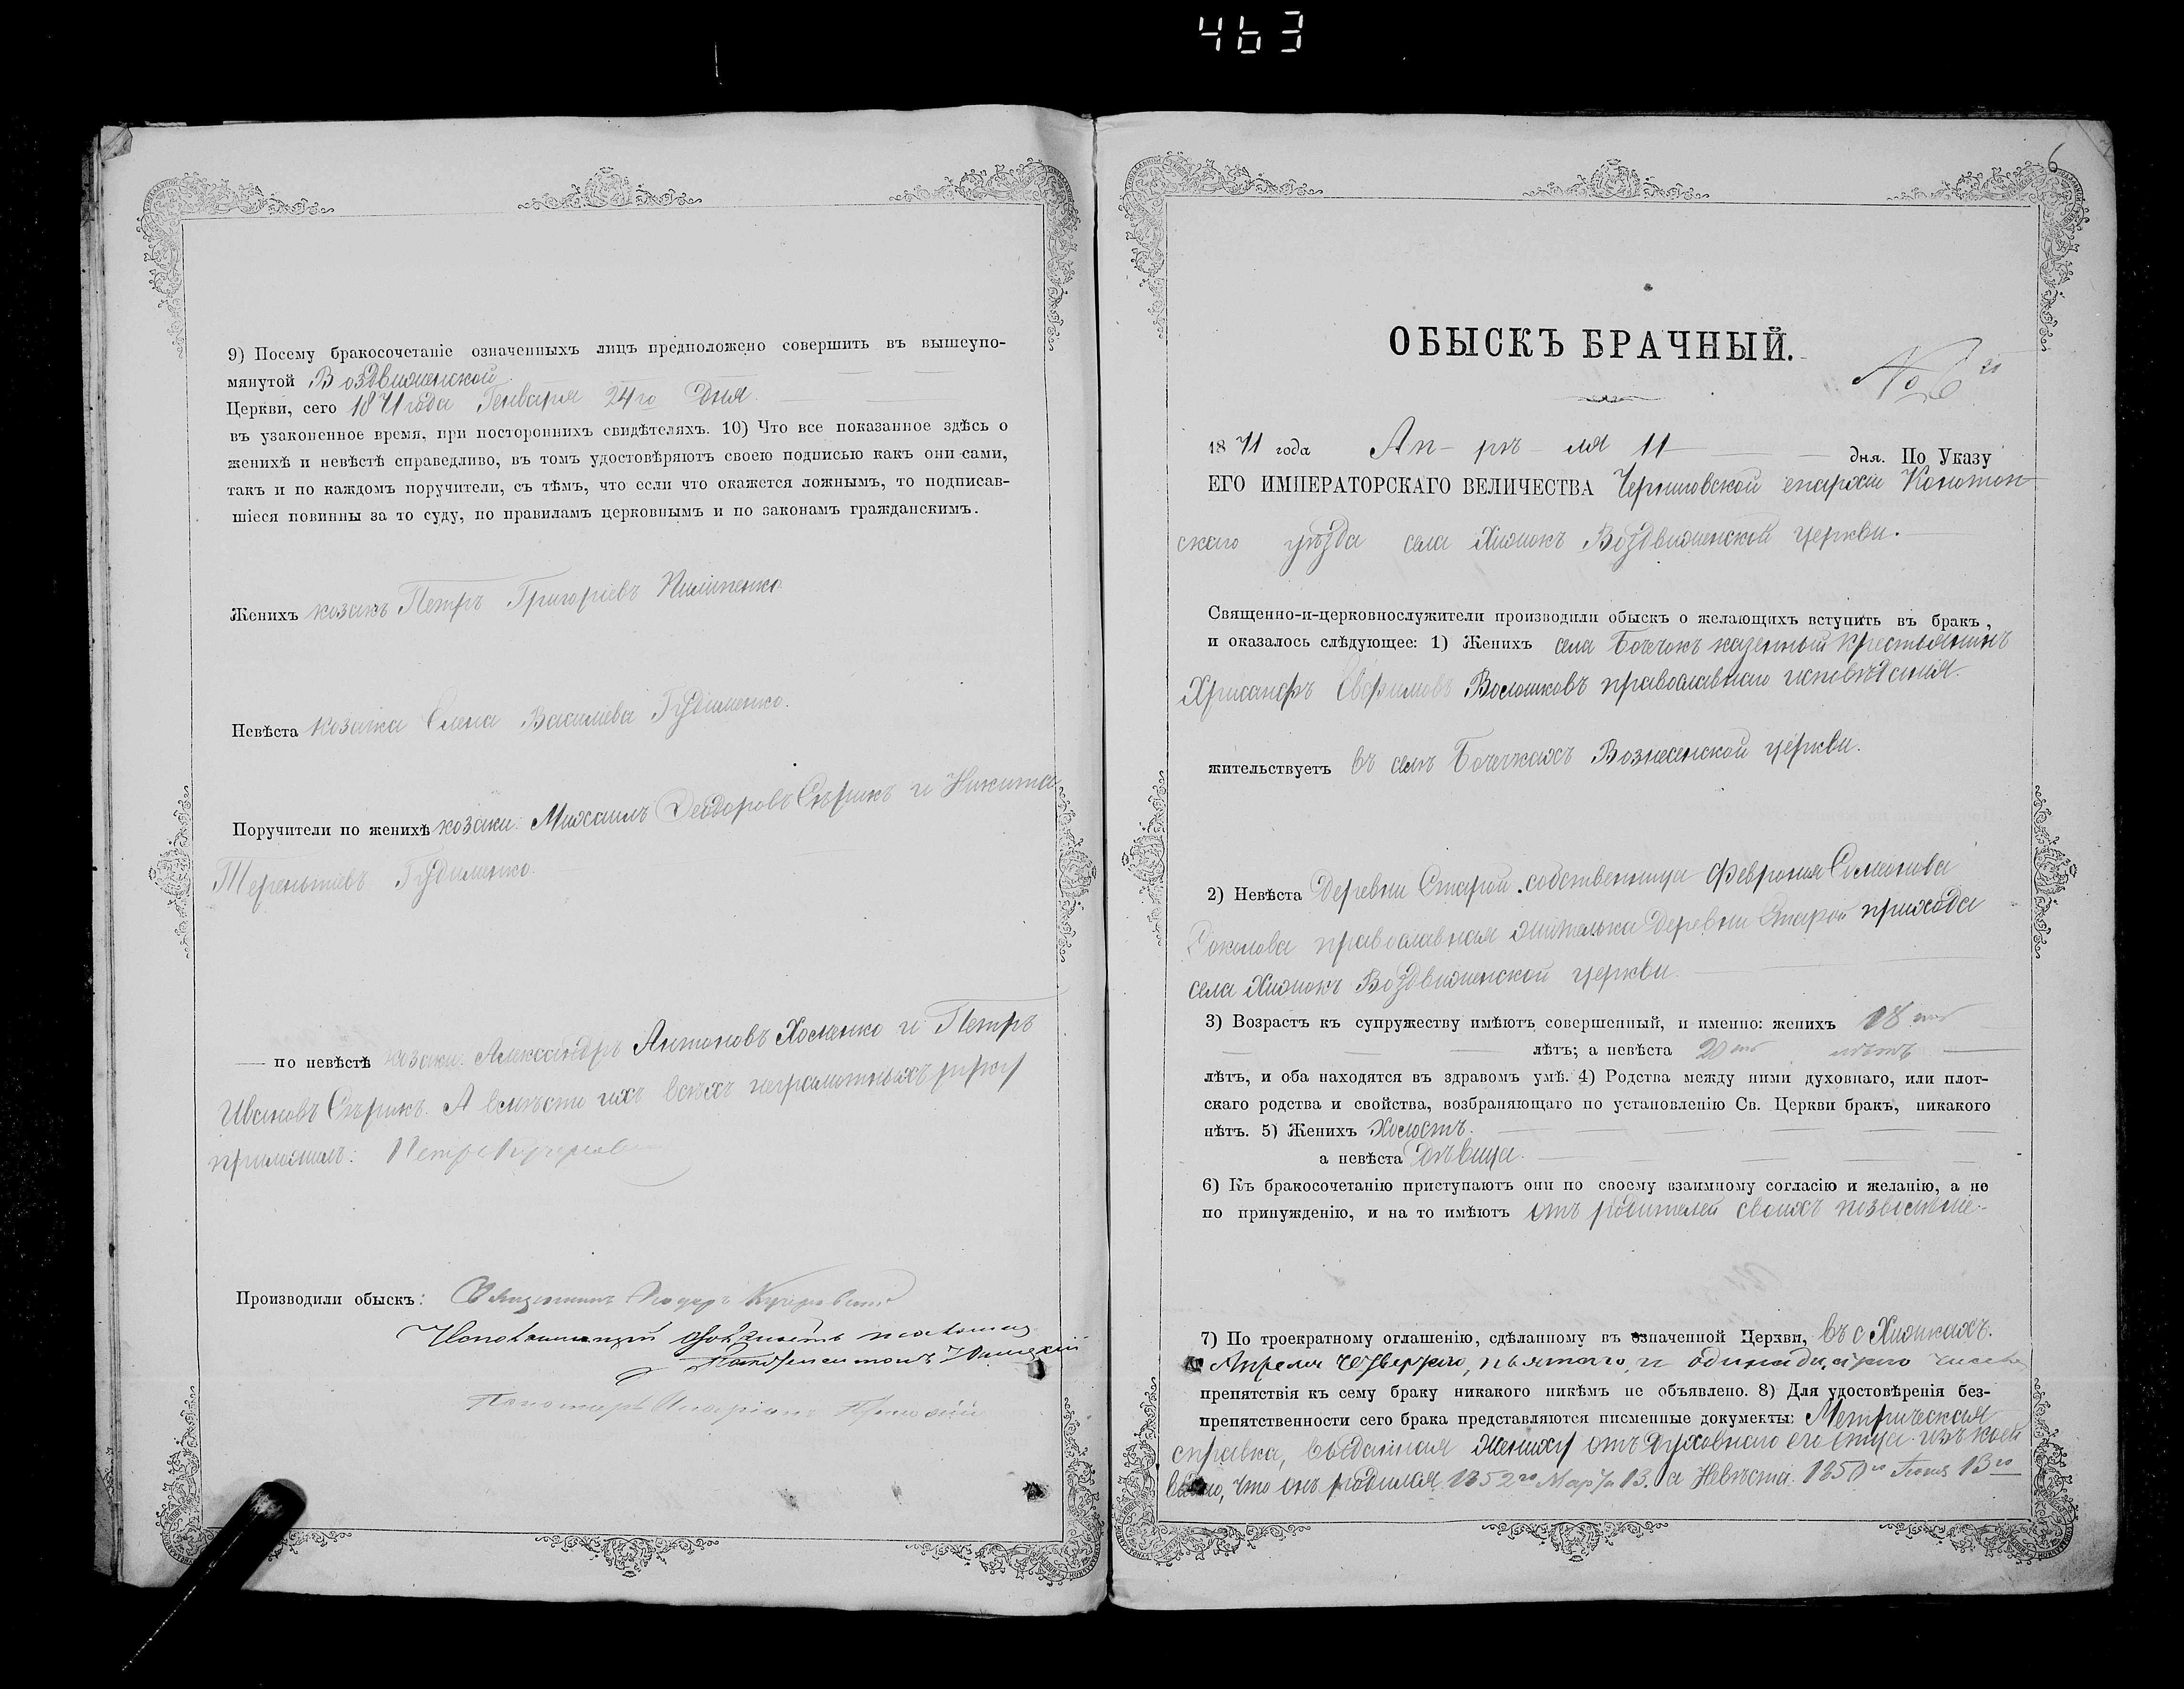 463
9) Посему бракосочетаніе означенныхъ лицъ предположено совершить въ вышеупо-
мянутой Воздвиженской
Церкви, сего 1871 года Генваря 24го дня.
въ узаконенное время, при постороннихъ свидѣтеляхъ. 10) Что все показанное здѣсь о
женихѣ и невѣстѣ справедливо, въ томъ удостовѣряютъ своею подписью какъ они сами,
такъ и по каждомъ поручители, съ тѣмъ, что если что окажется ложнымъ, то подписав-
шіеся повинны за то суду, по правиламъ церковнымъ и по законамъ гражданскимъ.
Женихъ козакъ Петръ Григоріевъ Пилипенко
Невѣста козачка Елена Василіева Гудименко.
Поручители по женихѣ козаки: Михаилъ Ѳеодоровъ Сѣрикъ и Никита
Терентіевъ Гудименко.
— по невѣстѣ козаки: Александръ Антоновъ Хоменко и Петръ
Ивановъ Сѣрикъ. А вмѣсто ихъ всѣхъ неграмотныхъ руку
приложилъ: Петръ
Производили обыскъ: Священникъ Ѳеодоръ
Исполняющій должность псаломщ
Пономарь Иларіонъ
6
ОБЫСКЪ БРАЧНЫЙ.
№ 6й
1871 года Ап-рѣ-ля 11 дня. По Указу
ЕГО ИМПЕРАТОРСКАГО ВЕЛИЧЕСТВА Черниговской епархіи Конотоп-
скаго уѣзда села Хижокъ Воздвиженской церкви.
Священно-и-церковнослужители производили обыскъ о желающихъ вступить въ бракъ,
и оказалось слѣдующее: 1) Женихъ села Бочечокъ казенный крестьянинъ
Хрисанфъ Евфимовъ Волошковъ православнаго исповѣданія.
жительствуетъ въ селѣ Бочечкахъ Вознесенской церкви.
2) Невѣста Деревни Старой собственница Февронія Симеонова
православная жителька Деревни Старой прихода
села Хижокъ Воздвиженской церкви.
3) Возрастъ къ супружеству имѣютъ совершенный, и именно: женихъ 18
лѣтъ; а невѣста 20 лѣтъ
лѣтъ, и оба находятся въ здравомъ умѣ. 4) Родства между ними духовнаго, или плот-
скаго родства и свойства, возбраняющаго по установленію Св. Церкви бракъ, никакого
нѣтъ. 5) Женихъ Холостъ.
а невѣста Дѣвица.
6) Къ бракосочетанію приступаютъ они по своему взаимному согласію и желанію, а не
по принужденію, и на то имѣютъ отъ родителей своихъ позволеніе.
7) По троекратному оглашенію, сдѣланному въ означенной Церкви, въ с Хижкахъ.
Апреля четвертаго, пьятого, и одинадцатаго числа
препятствія къ сему браку никакого никѣмъ не объявлено. 8) Для удостовѣренія без-
препятственности сего брака представляются писменные документы: Метрическая
справка, выданная жениху отъ Духовнаго его отца изъ коей
видно, что онъ родился 1852го Марта 13. а Невѣста 1850го 13го